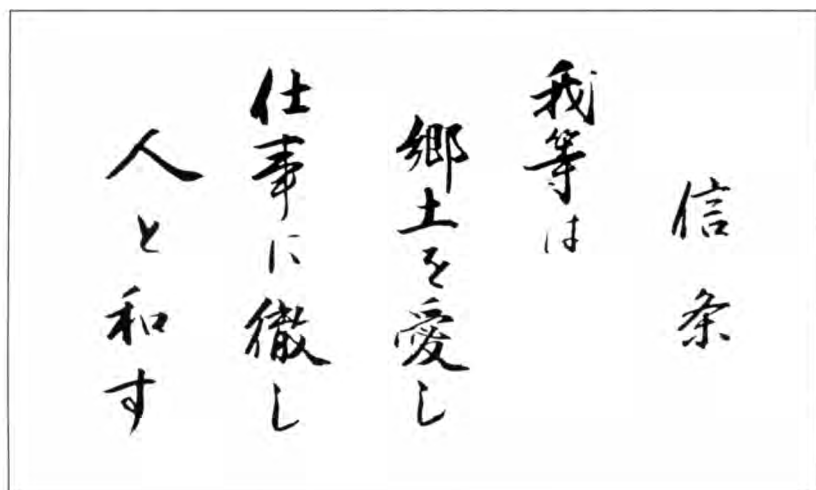 信条
我等は
郷土を愛し
仕事に徹し
人と和す